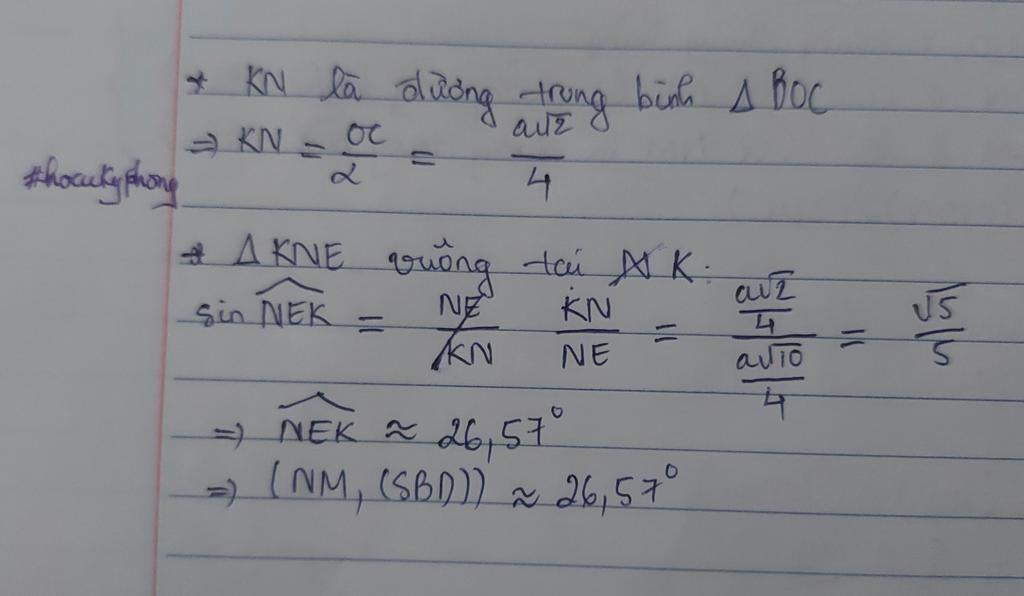 * KN là đường trung bình Δ BOC
⇒ KN = OC/2 = a√2/4
#hocukyphong
* Δ KNE vuông tại N K.
sin NEK = NE/KN KN/NE = (a√2/4)/(a√10/4) = √5/5
⇒ NEK ≈ 26,57°
⇒ (NM, (SBD)) ≈ 26,57°